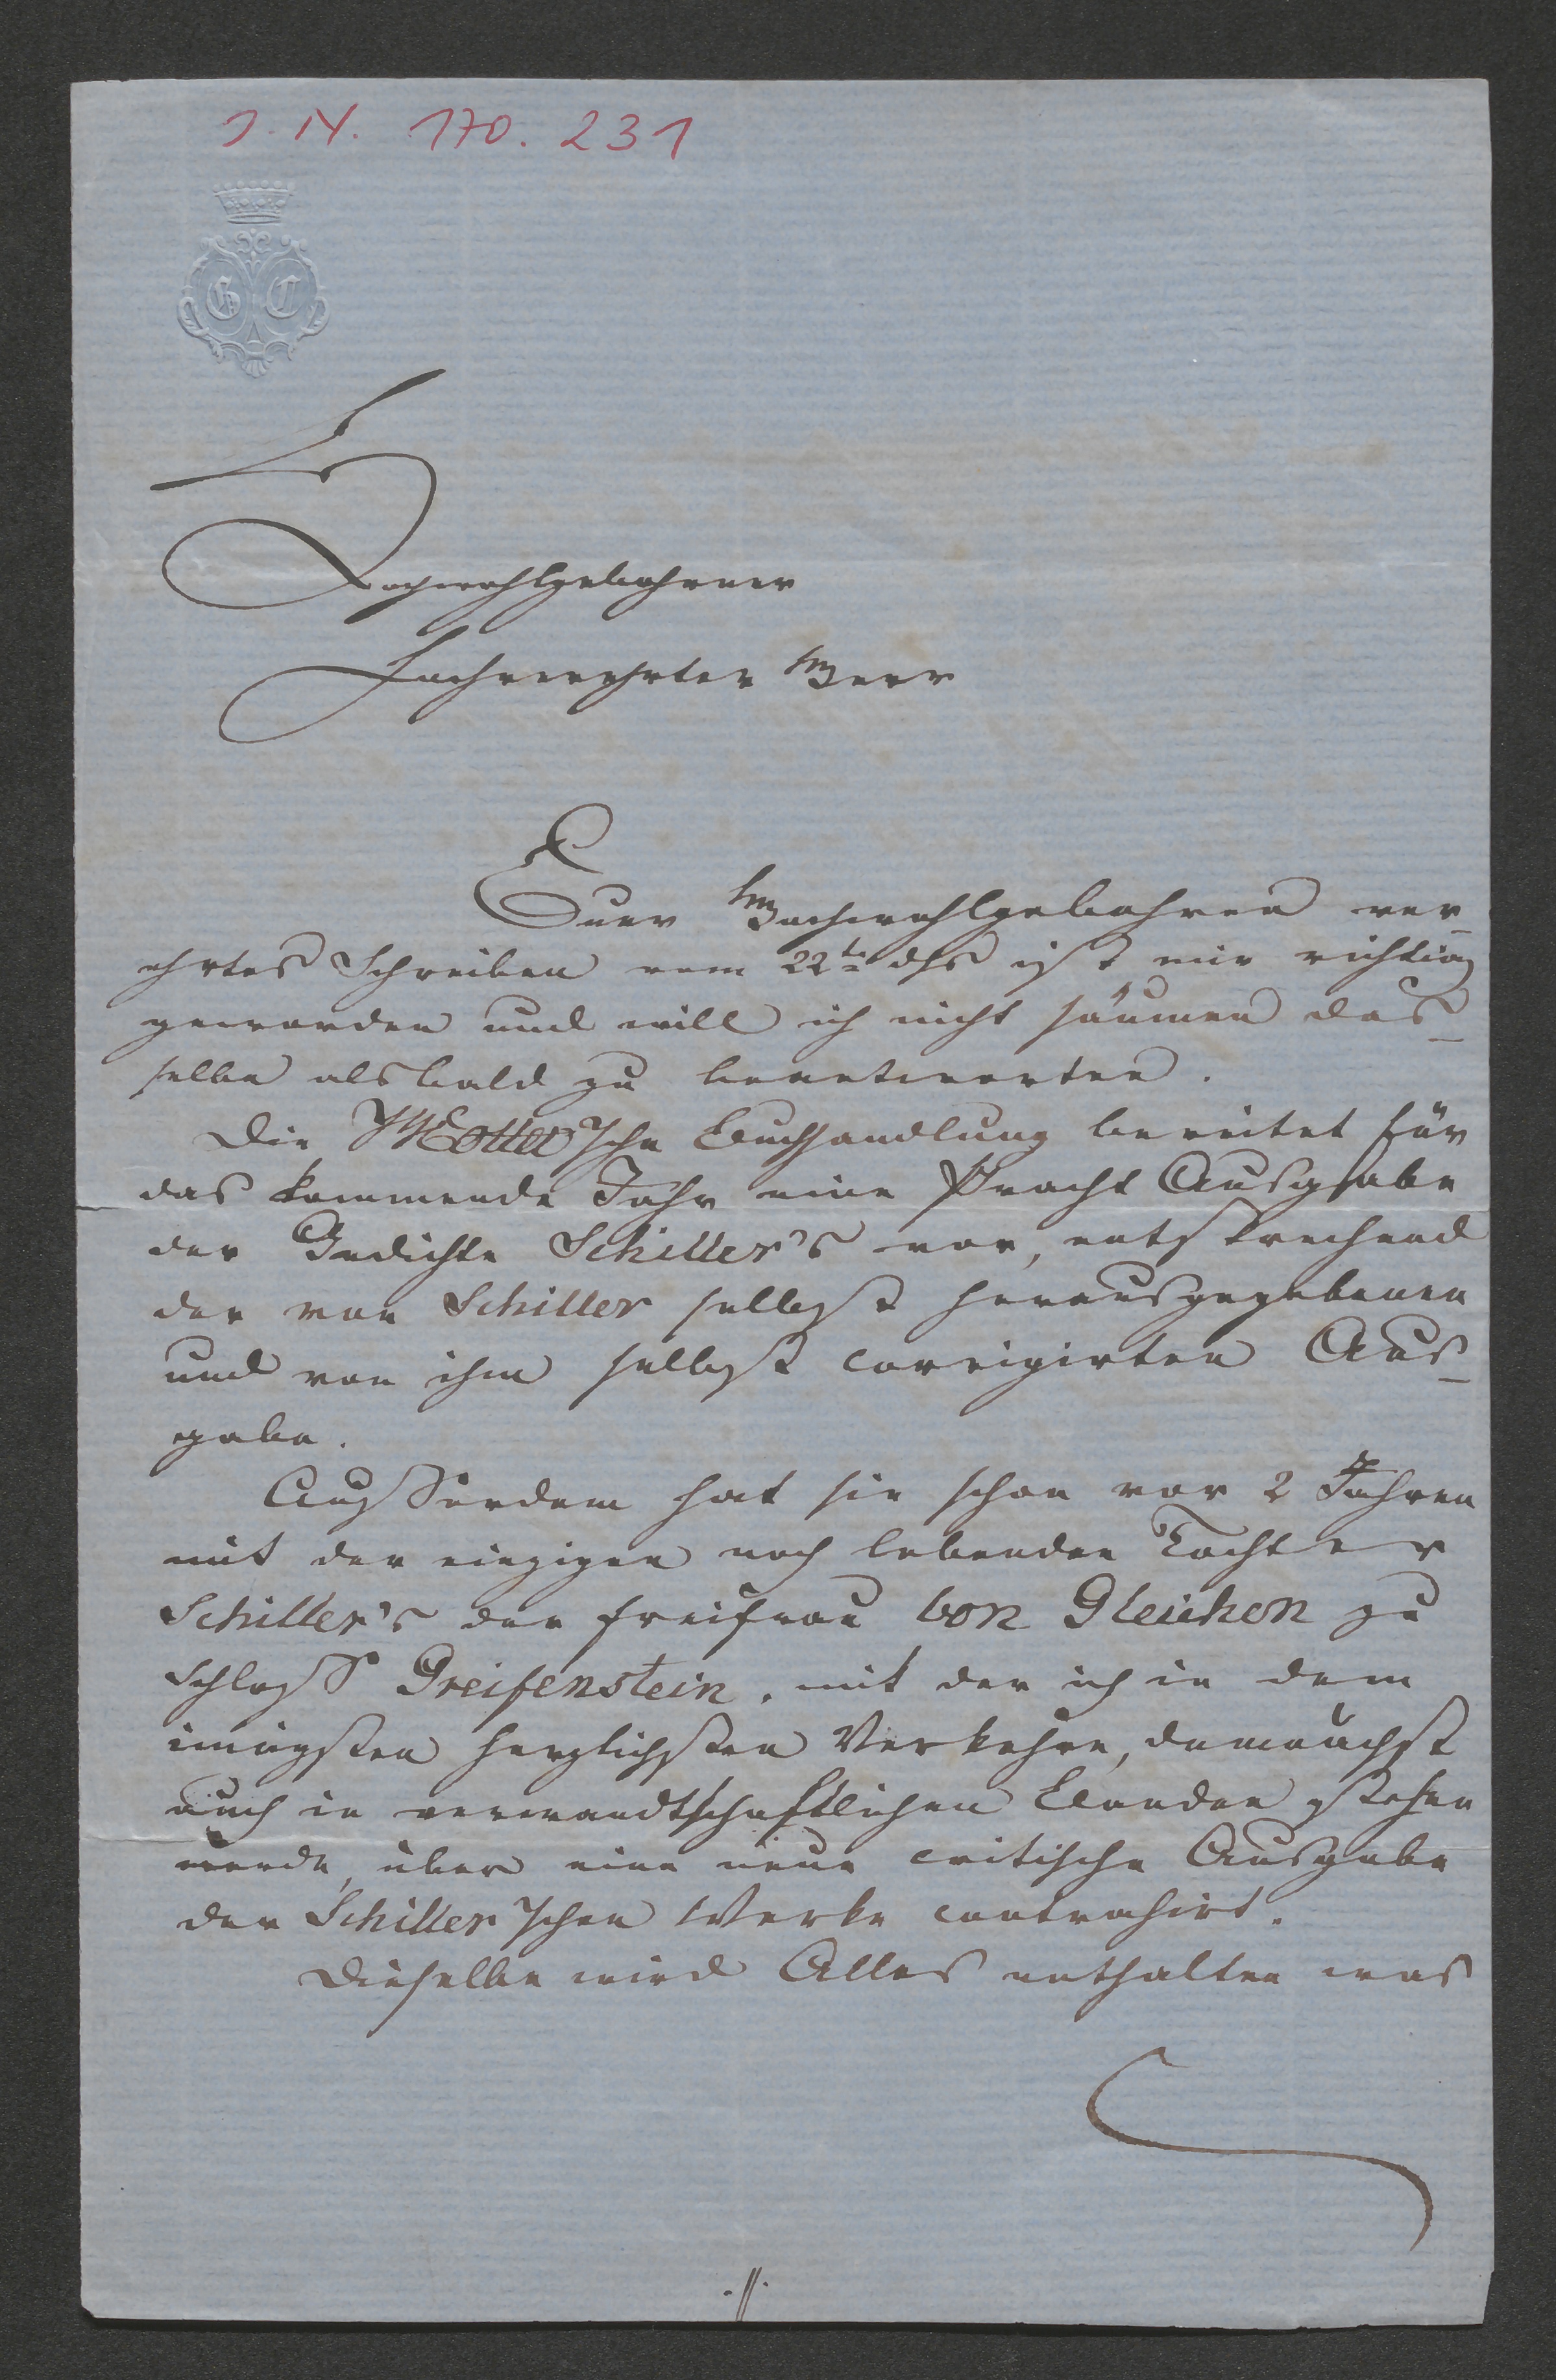 J. N. 170. 231
G C
Hochwohlgebohrener
Hochverehrter Herr
Euer Hochwohlgebohren ver-
ehrtes Schreiben vom 22t dß ist mir richtig
geworden und will ich nicht säumen das-
selbe alsbald zu beantworten.
Die J G Cotta'sche Buchhandlung bereitet für
das kommende Jahr eine Pracht Ausgabe
der Gedichte Schiller's vor, entsprechend
der von Schiller selbst herausgegebenen
und von ihm selbst corrigirten Aus-
gabe.
Ausserdem hat sie schon vor 2 Jahren
mit der einzigen noch lebenden Tochter
Schiller's der Freifrau von Gleichen zu
Schloss Greifenstein, mit der ich in dem
innigsten herzlichsten Verkehre, demnächst
auch in verwandtschaftlichen Banden stehen
werde, über eine neue critische Ausgabe
der Schiller'schen Werke contrahirt.
Dieselbe wird Alles enthalten was
./.